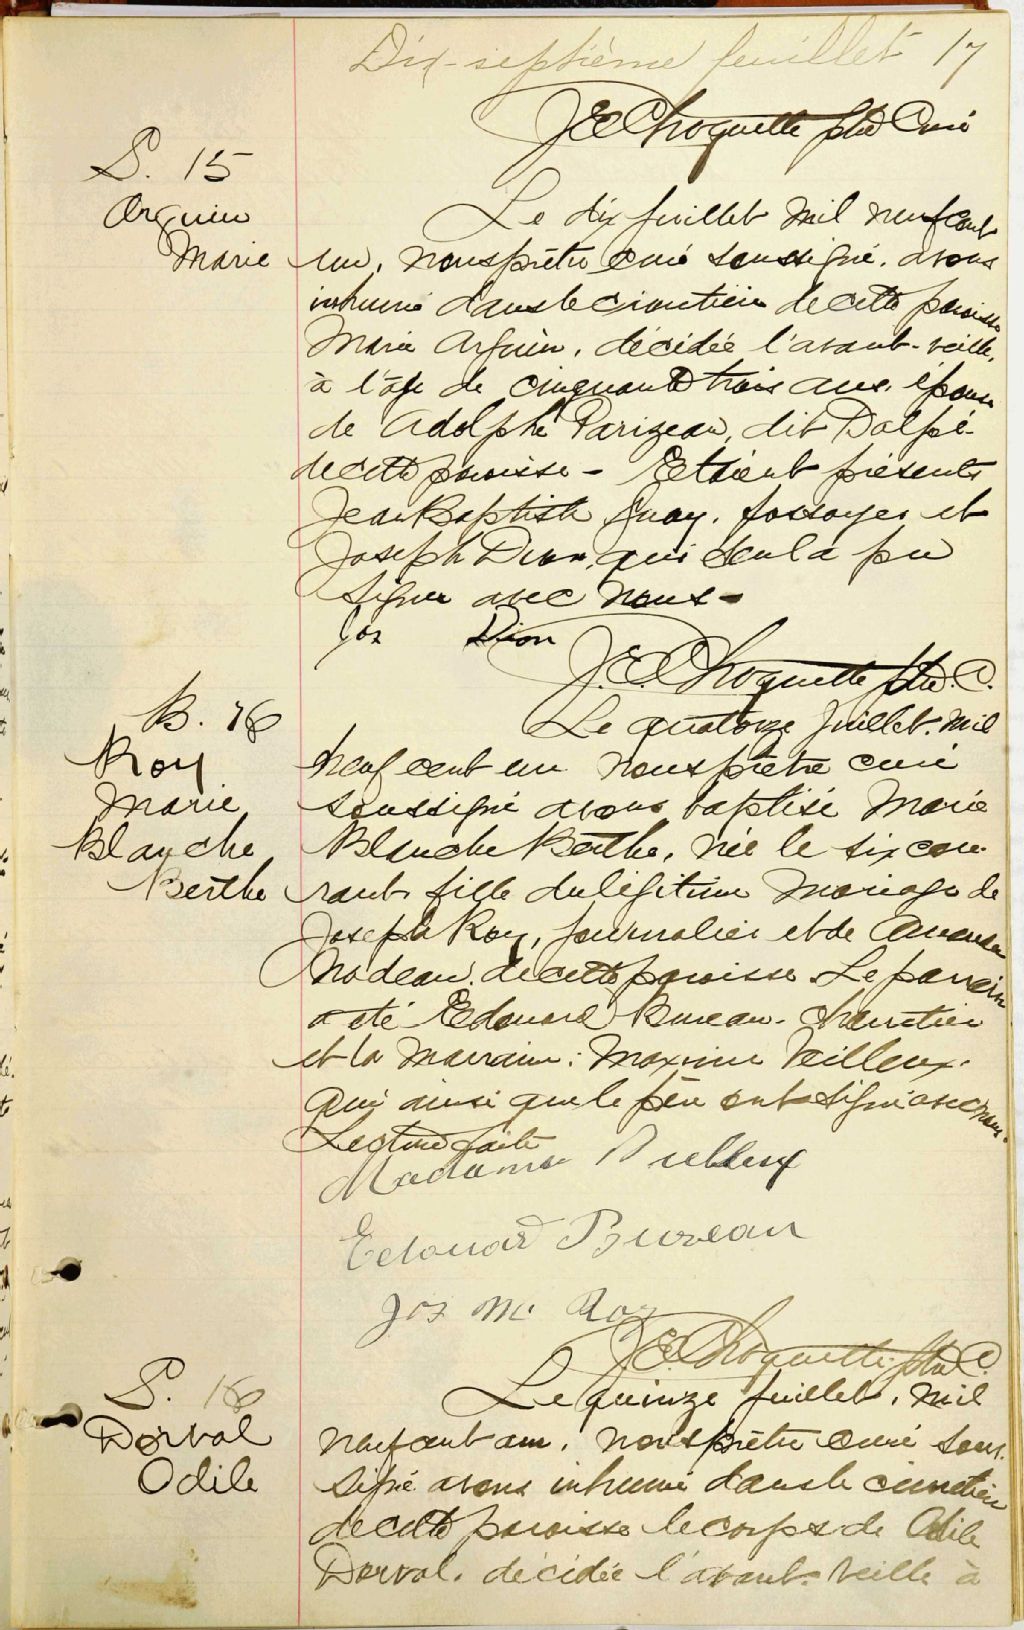 Dix-septième feuillet 17
J E Choquette ptre Curé
S. 15
Arguin
Marie
Le dix juillet mil neuf cent
un, nous prêtre curé soussigné, avons
inhumé dans le cimetière de cette paroisse
Marie Arguin, décédée l'avant-veille,
à l'âge de cinquante trois ans, épouse
de Adolphe Parizeau, dit Dalpé
de cette paroisse - Etaient présents
Jean Baptiste Guay, fossoyer et
Joseph Dion, qui seul a pu
signer avec nous -
Jos Dion
J. E. Choquette ptre. C.
B. 76
Roy
Marie
Blanche
Berthe
Le quatorze juillet. mil
neuf cent un nous prêtre curé
soussigné avons baptisé Marie
Blanche Berthe, née le six cou-
rant fille du légitime mariage de
Joseph Roy, journalier et de Amanda
Nadeau, de cette paroisse. Le parrain
a été Edouard Bureau. charretier
et la marraine: Maxime Veilleux.
qui ainsi que le père ont signé avec nous.
Lecture faite
Madame Vielleux
Edouard Bureau
Jos M. Roy
J. E. Choquette ptre C.
S. 16
Dorval
Odile
Le quinze juillet, mil
neuf cent un, nous prêtre curé sous-
signé avons inhumé dans le cimetière
de cette paroisse le corps de Odile
Dorval, décédée l'avant-veille à